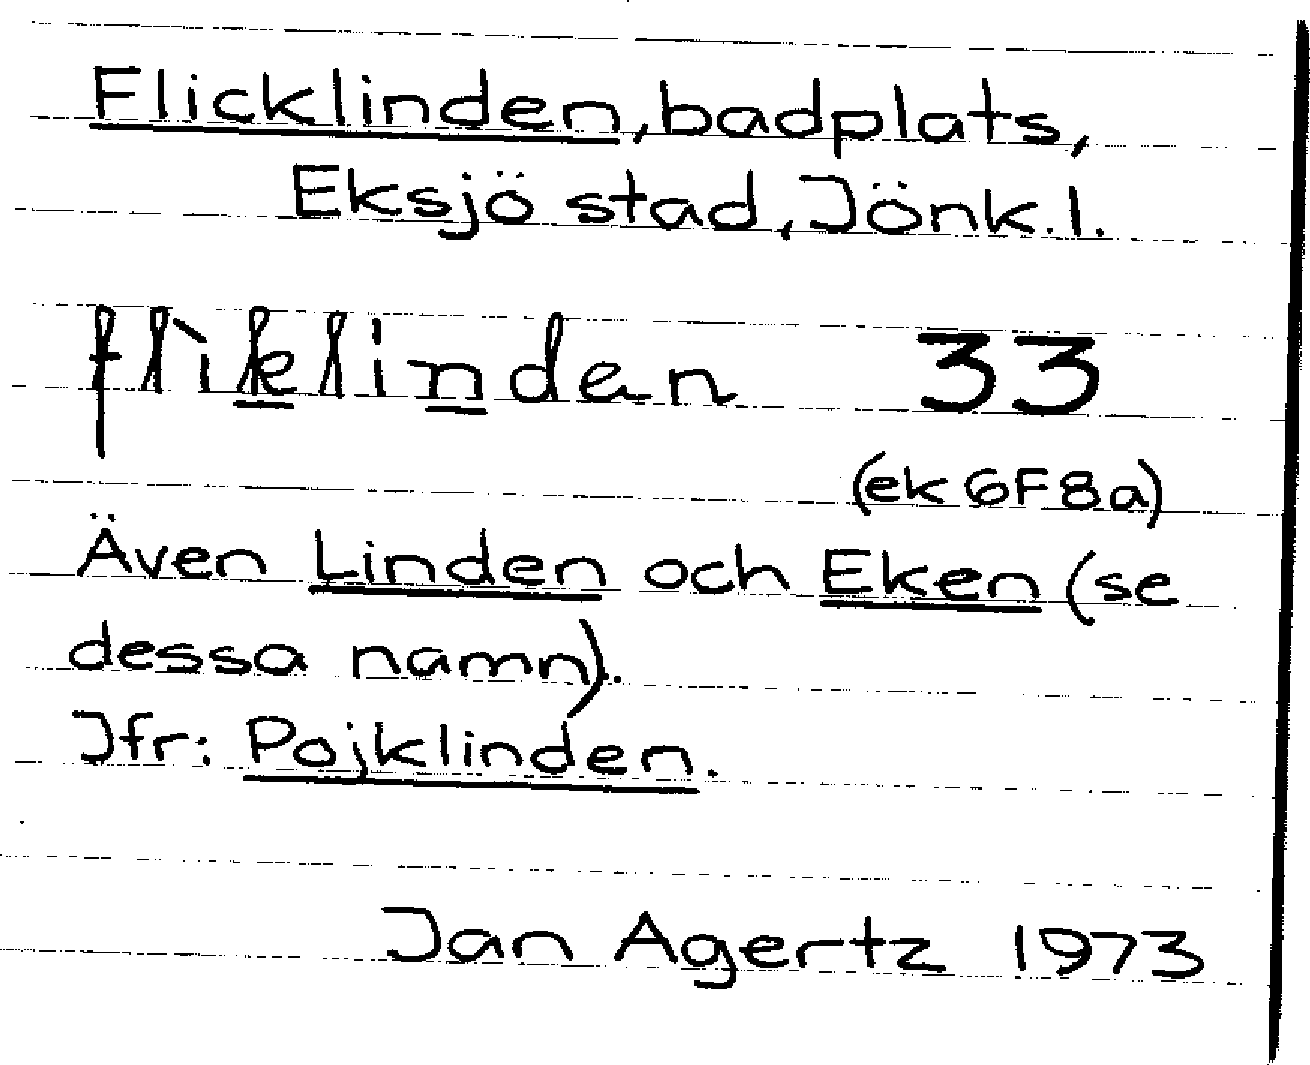 Flicklinden, badplats,
Eksjö stad, Jönk. l.
flìklindan 33
(ek 6F8a)
Även Linden och Eken (se
dessa namn).
Jfr: Pojklinden.
Jan Agertz 1973